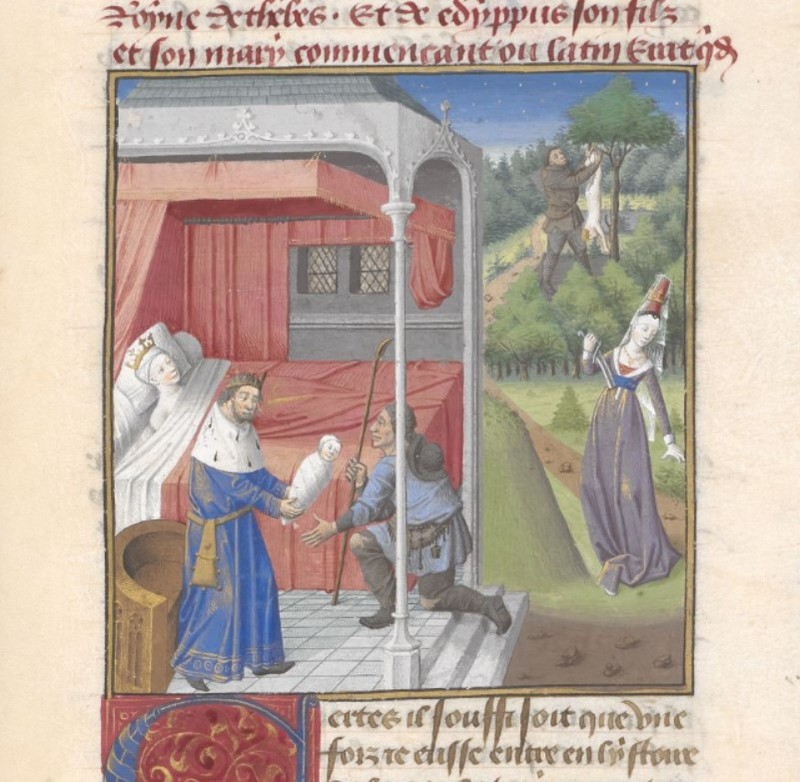 Royne de thebes. Et de edyppus son filz
et son mary commencant ou latin Erat qd
ertes il souffisoit que vne
fors ie eusse entre en lystoire